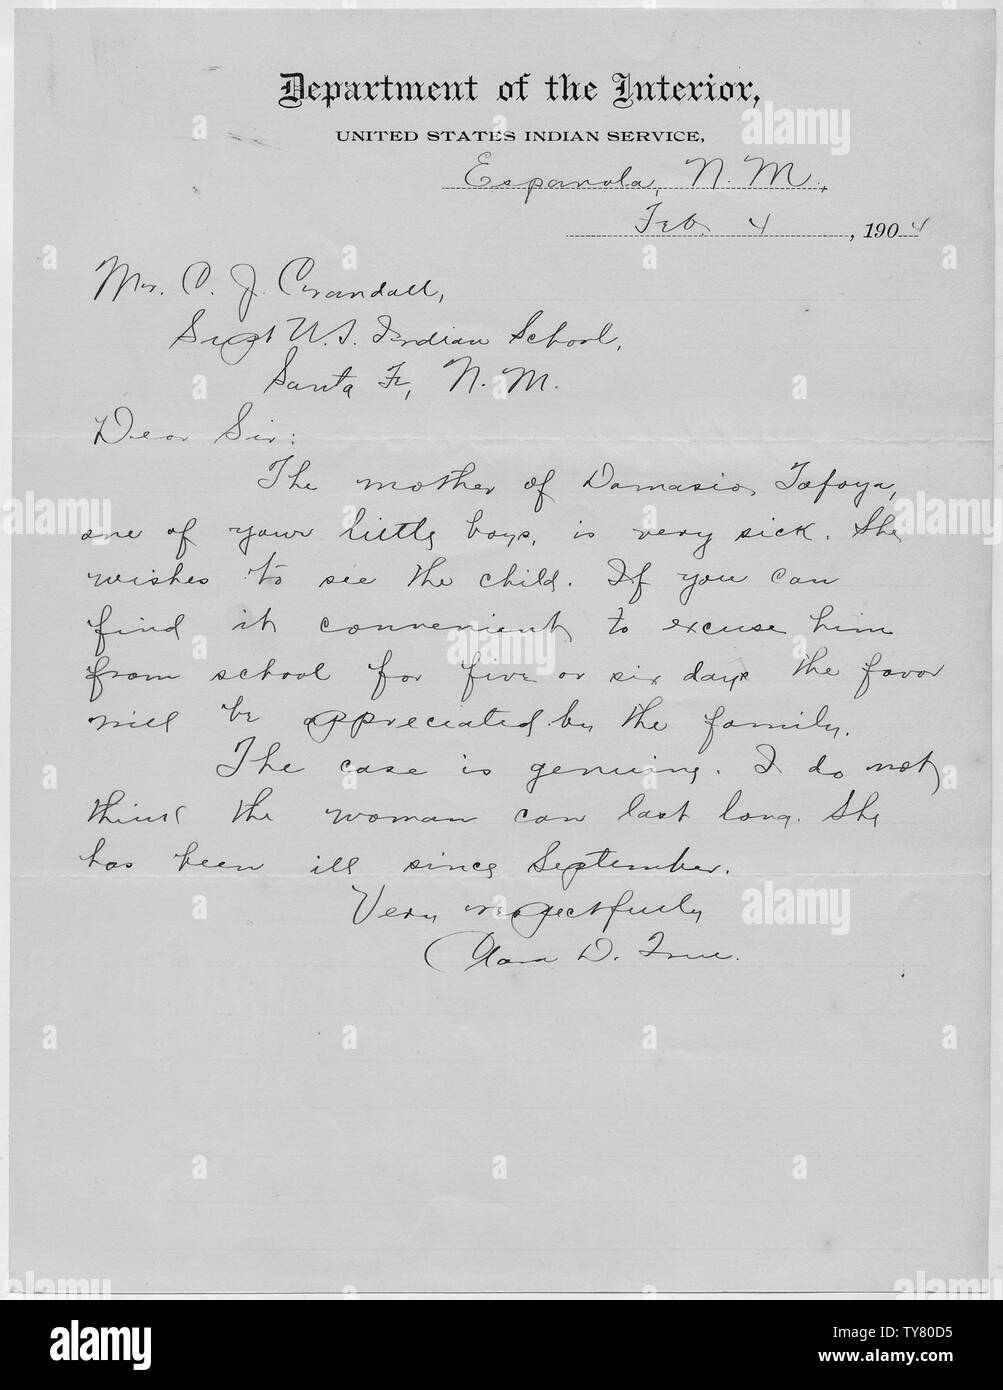 Department of the Interior,
UNITED STATES INDIAN SERVICE,
Espanola, N. M.,
Feb. 4, 1904
Mr. C. J. Crandall,
Supt U. S. Indian School,
Santa Fe, N. M.
Dear Sir:
The mother of Damasio Tafoya,
one of your little boys, is very sick. She
wishes to see the child. If you can
find it convenient to excuse him
from school for five or six days the favor
will be appreciated by the family.
The case is genuine. I do not
think the woman can last long. She
has been ill since September.
Very respectfully
Clara D. True.
alamy
Image ID: TY80D5
www.alamy.com